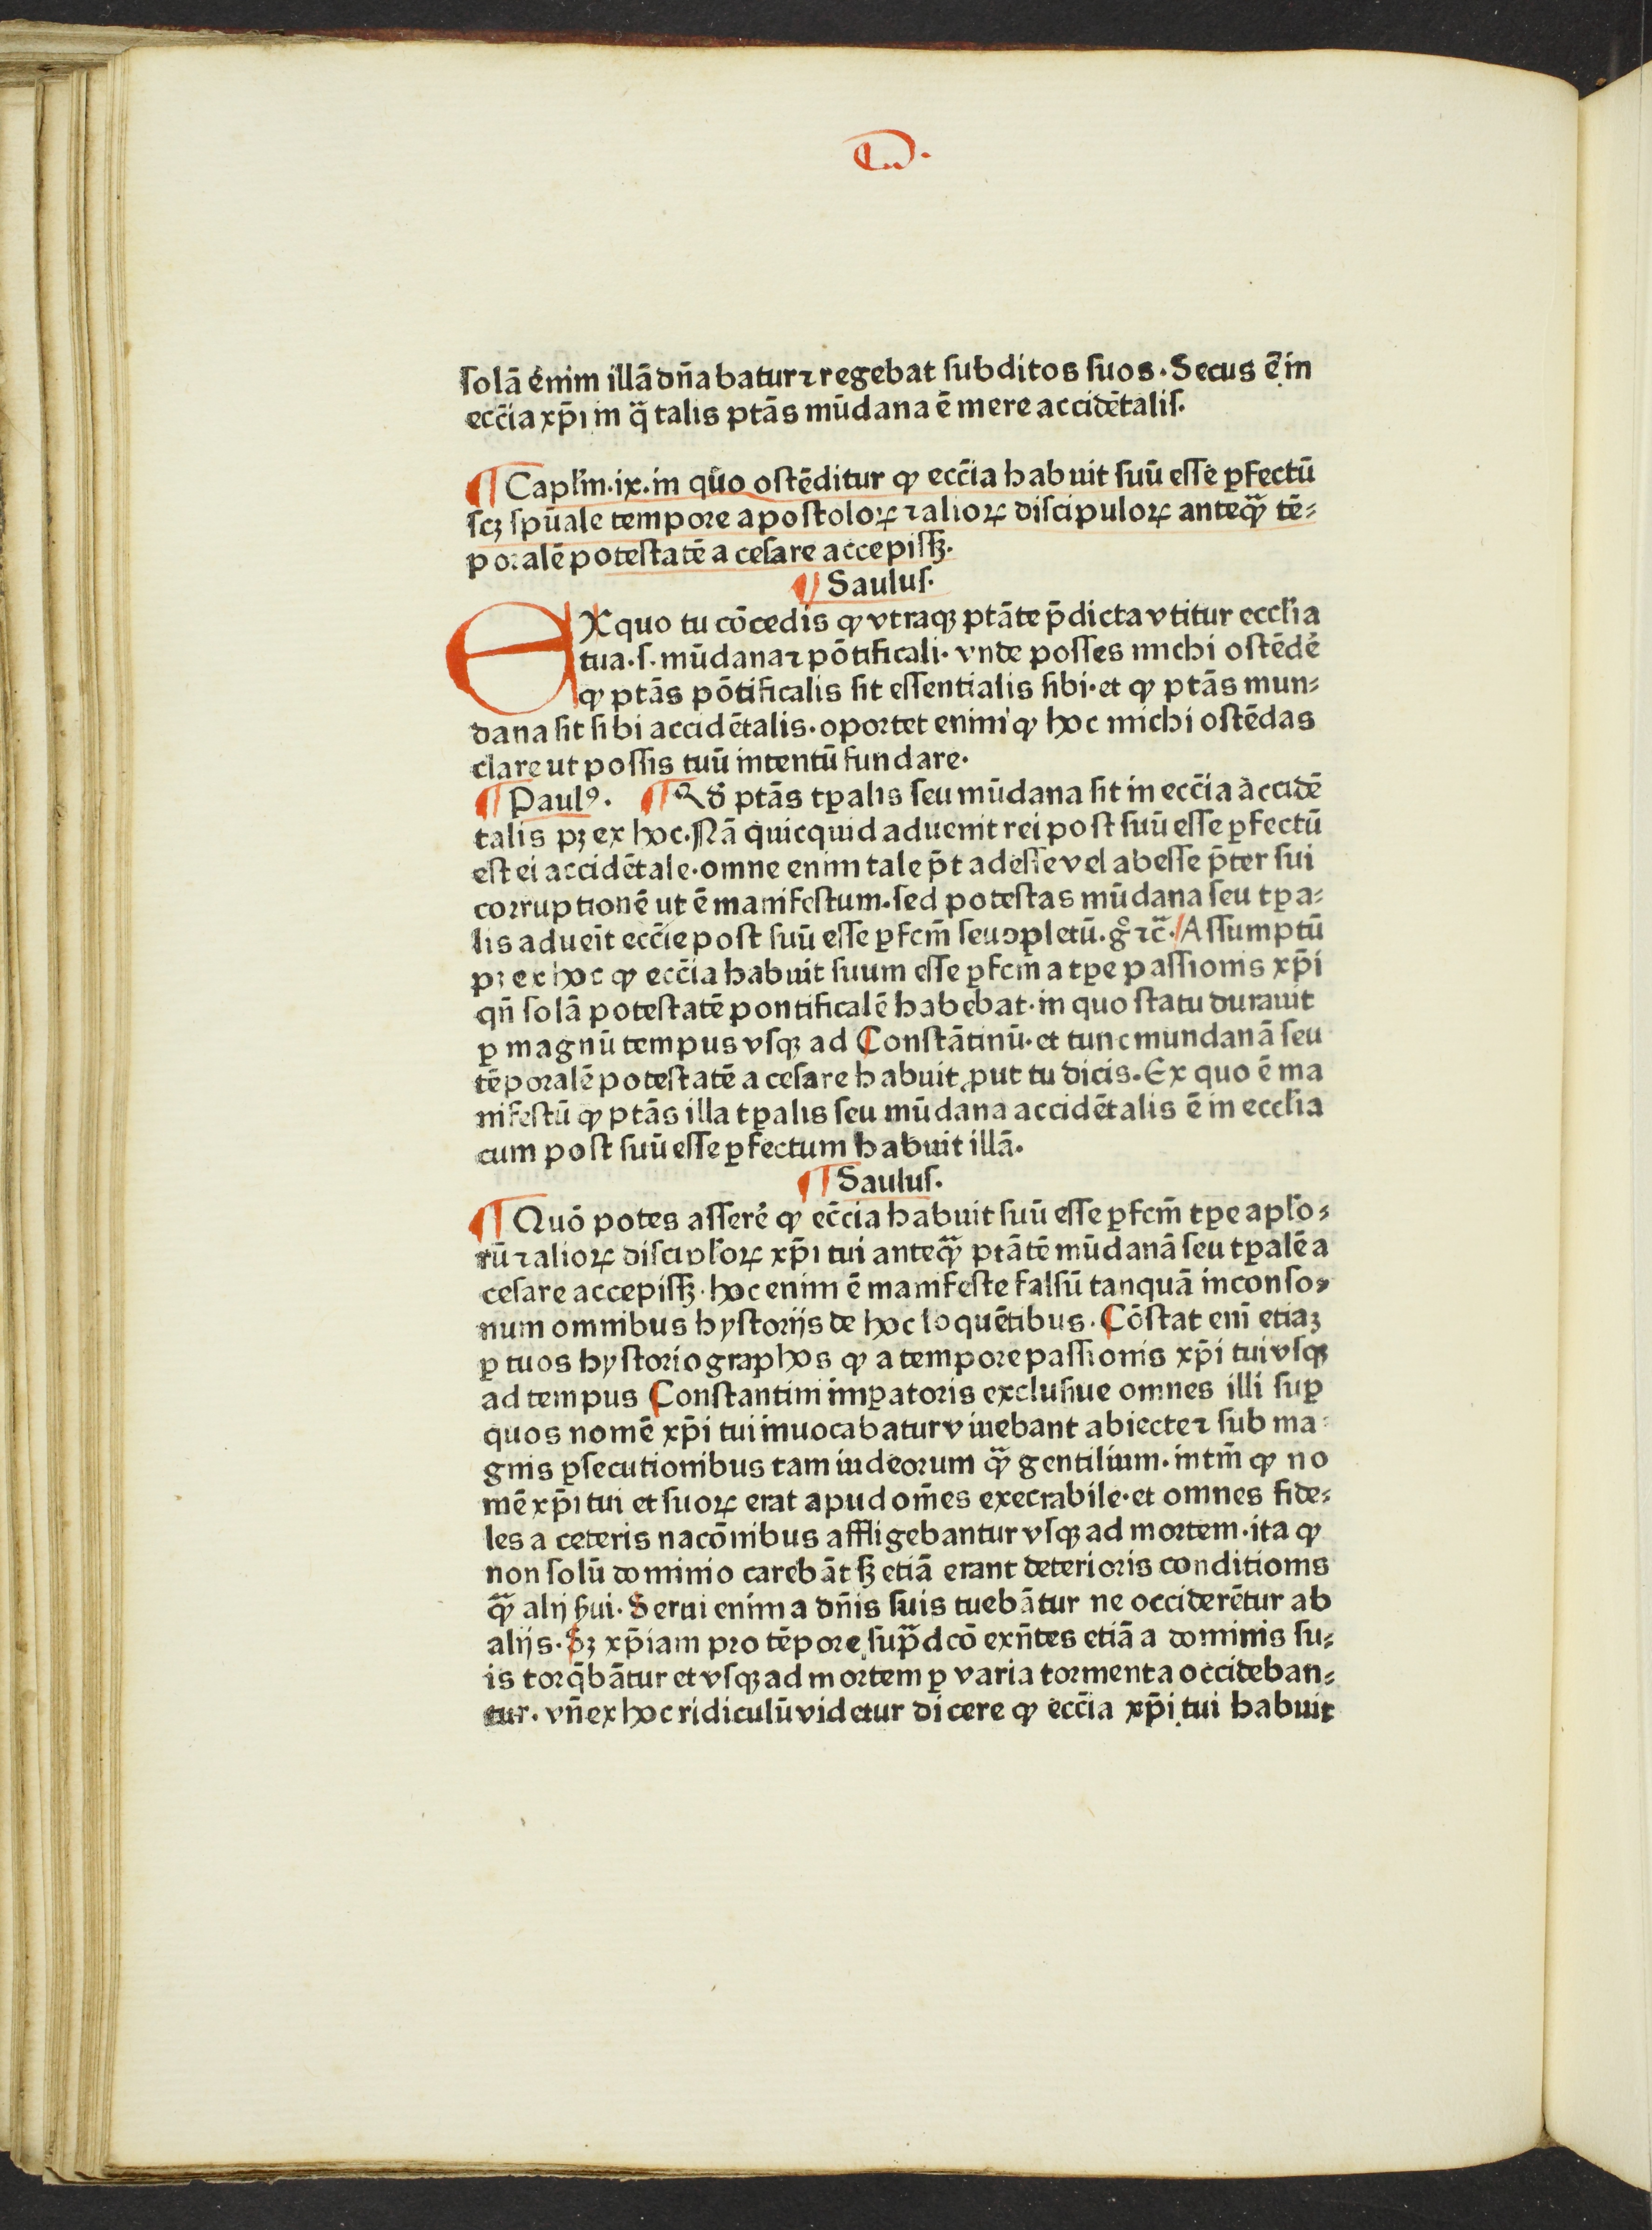 ſolā enim illā dn̄abatur ⁊ regebat ſubditos ſuos. Secus ē in
ecc̄ia xp̄i in q̄ talis ptās mūdana ē mere accidētaliſ.
¶ Capl'm. ix. in quo oſtēditur ꝙ ecc̄ia habuit ſuū eſſe ꝑfectū
ſcꝫ ſpūale tempore apoſtoloꝝ ⁊ alioꝝ diſcipuloꝝ anteꝙ̄ tē⸗
poralē poteſtatē a ceſare accepiſſꝫ.
¶ Sauluſ.
EX quo tu cōcedis ꝙ vtraqꝫ ptāte p̄dicta vtitur eccl'ia
tua. ſ. mūdana ⁊ pōtificali. vnde poſſes michi oſtēdē
ꝙ ptās pōtificalis ſit eſſentialis ſibi. et ꝙ ptās mun⸗
dana ſit ſibi accidētalis. oportet enim ꝙ hoc michi oſtēdas
clare ut poſſis tuū intentū fundare.
¶ Paulꝰ. ¶ Qd' ptās tꝑalis ſeu mūdana ſit in ecc̄ia accidē
talis pꝫ ex hoc. Nā quicquid aduenit rei poſt ſuū eſſe ꝑfectū
eſt ei accidētale. omne enim tale p̄t adeſſe vel abeſſe p̄ter ſui
corruptionē ut ē manifeſtum. ſed poteſtas mūdana ſeu tꝑa⸗
lis adueīt ecc̄ie poſt ſuū eſſe ꝑfcm̄ ſeu ꝯpletū. gͦ ⁊c̄. Aſſumptū
pꝫ ex hoc ꝙ ecc̄ia habuit ſuum eſſe ꝑfcm̄ a tꝑe paſſionis xp̄i
qn̄ ſolā poteſtatē pontificalē habebat. in quo ſtatu durauit
ꝑ magnū tempus vſqꝫ ad Conſtātinū. et tunc mundanā ſeu
tēporalē poteſtatē a ceſare habuit ꝓut tu dicis. Ex quo ē ma
nifeſtū ꝙ ptās illa tꝑalis ſeu mūdana accidētalis ē in eccl'ia
cum poſt ſuū eſſe ꝑfectum habuit illā.
¶ Sauluſ.
¶ Quō potes aſſerē ꝙ ecc̄ia habuit ſuū eſſe ꝑfcm̄ tꝑe apl'o⸗
rū ⁊ alioꝝ diſcipl'oꝝ xp̄i tui anteꝙ̄ ptātē mūdanā ſeu tꝑalē a
ceſare accepiſſꝫ. hoc enim ē manifeſte falſū tanquā inconſo⸗
num omnibus hyſtorijs de hoc loquētibus. Cōſtat enī etiaꝫ
ꝑ tuos hyſtoriographos ꝙ a tempore paſſionis xp̄i tui vſqꝫ
ad tempus Conſtantini imꝑatoris excluſiue omnes illi ſuꝑ
quos nomē xp̄i tui inuocabatur viuebant abiecte ⁊ ſub ma⸗
gnis ꝑſecutionibus tam iudeorum ꝙ̄ gentilium. intm̄ ꝙ no
mē xp̄i tui et ſuoꝝ erat apud om̄es execrabile. et omnes fide⸗
les a ceteris nacōnibus affligebantur vſqꝫ ad mortem. ita ꝙ
non ſolū dominio carebāt ſꝫ etiā erant deterioris conditionis
ꝙ̄ alij ẜui. Serui enim a dn̄is ſuis tuebātur ne occiderētur ab
alijs. Sꝫ xp̄iani pro tēpore ſup̄dcō exn̄tes etiā a dominis ſu⸗
is torq̄bātur et vſqꝫ ad mortem ꝑ varia tormenta occideban⸗
tur. vn̄ ex hoc ridiculū videtur dicere ꝙ ecc̄ia xp̄i tui habuit